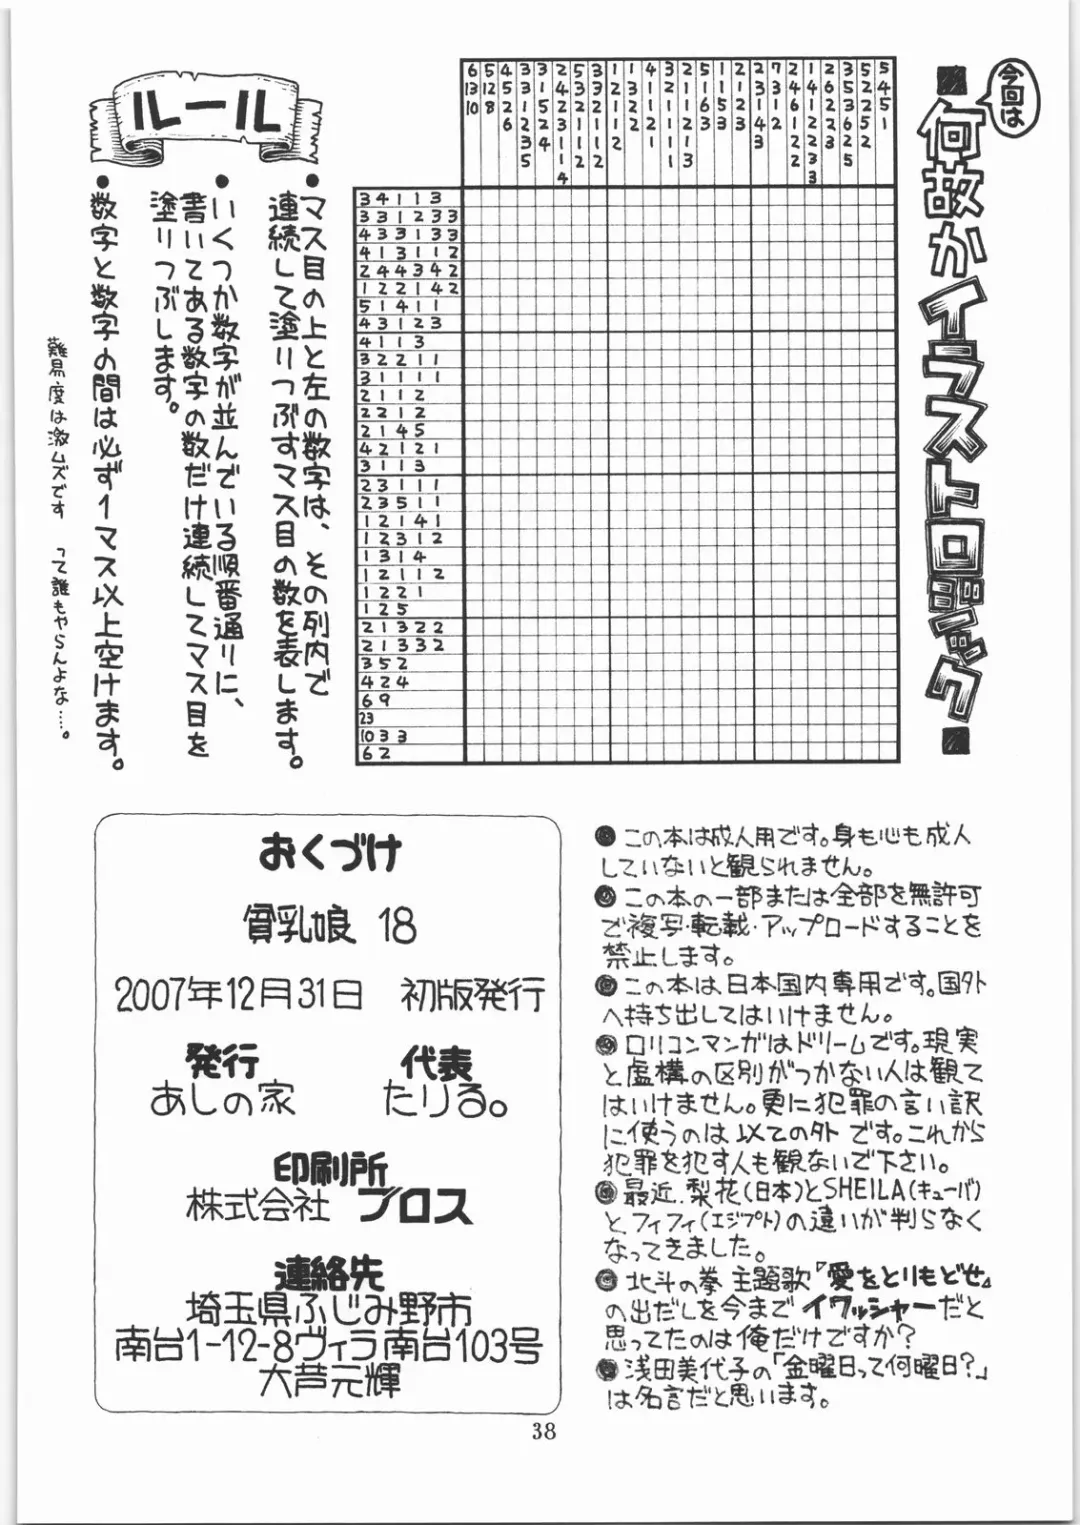 今回は
何故かイラストロジック
ルール
●マス目の上と左の数字は、その列内で
連続して塗りつぶすマス目の数を表します。
●いくつか数字が並んでいる順番通りに、
書いてある数字の数だけ連続してマス目を
塗りつぶします。
●数字と数字の間は必ず1マス以上空けます。
難易度は激ムズです って誰もやらんよな…。
3 4 1 1 3
3 3 1 2 3 3
4 3 3 1 3 3
4 1 3 1 1 2
2 4 4 3 4 2
1 2 2 1 4 2
5 1 4 1 1
4 3 1 2 3
4 1 1 3
3 2 2 1 1
3 1 1 1 1
2 1 1 2
2 2 1 2
2 1 4 5
4 2 1 2 1
3 1 1 3
2 3 1 1 1
2 3 5 1 1
1 2 1 4 1
1 2 3 1 2
1 3 1 4
1 2 1 1 2
1 2 2 1
1 2 5
2 1 3 2 2
2 1 3 3 2
3 5 2
4 2 4
6 9
23
10 3 3
6 2
おくづけ
貧乳娘 18
2007年12月31日 初版発行
発行 代表
あしの家 たりる。
印刷所
株式会社 ブロス
連絡先
埼玉県ふじみ野市
南台1-12-8ヴィラ南台103号
大芦元輝
●この本は成人用です。身も心も成人
していないと観られません。
●この本の一部または全部を無許可
で複写・転載・アップロードすることを
禁止します。
●この本は、日本国内専用です。国外
へ持ち出してはいけません。
●ロリコンマンガはドリームです。現実
と虚構の区別がつかない人は観て
はいけません。更に犯罪の言い訳
に使うのは以ての外です。これから
犯罪を犯す人も観ないで下さい。
●最近、梨花(日本)とSHEILA(キューバ)
とフィフィ(エジプト)の違いが判らなく
なってきました。
●北斗の拳 主題歌『愛をとりもどせ』
の出だしを今までイワッシャーだと
思ってたのは俺だけですか?
●浅田美代子の「金曜日って何曜日?」
は名言だと思います。
38